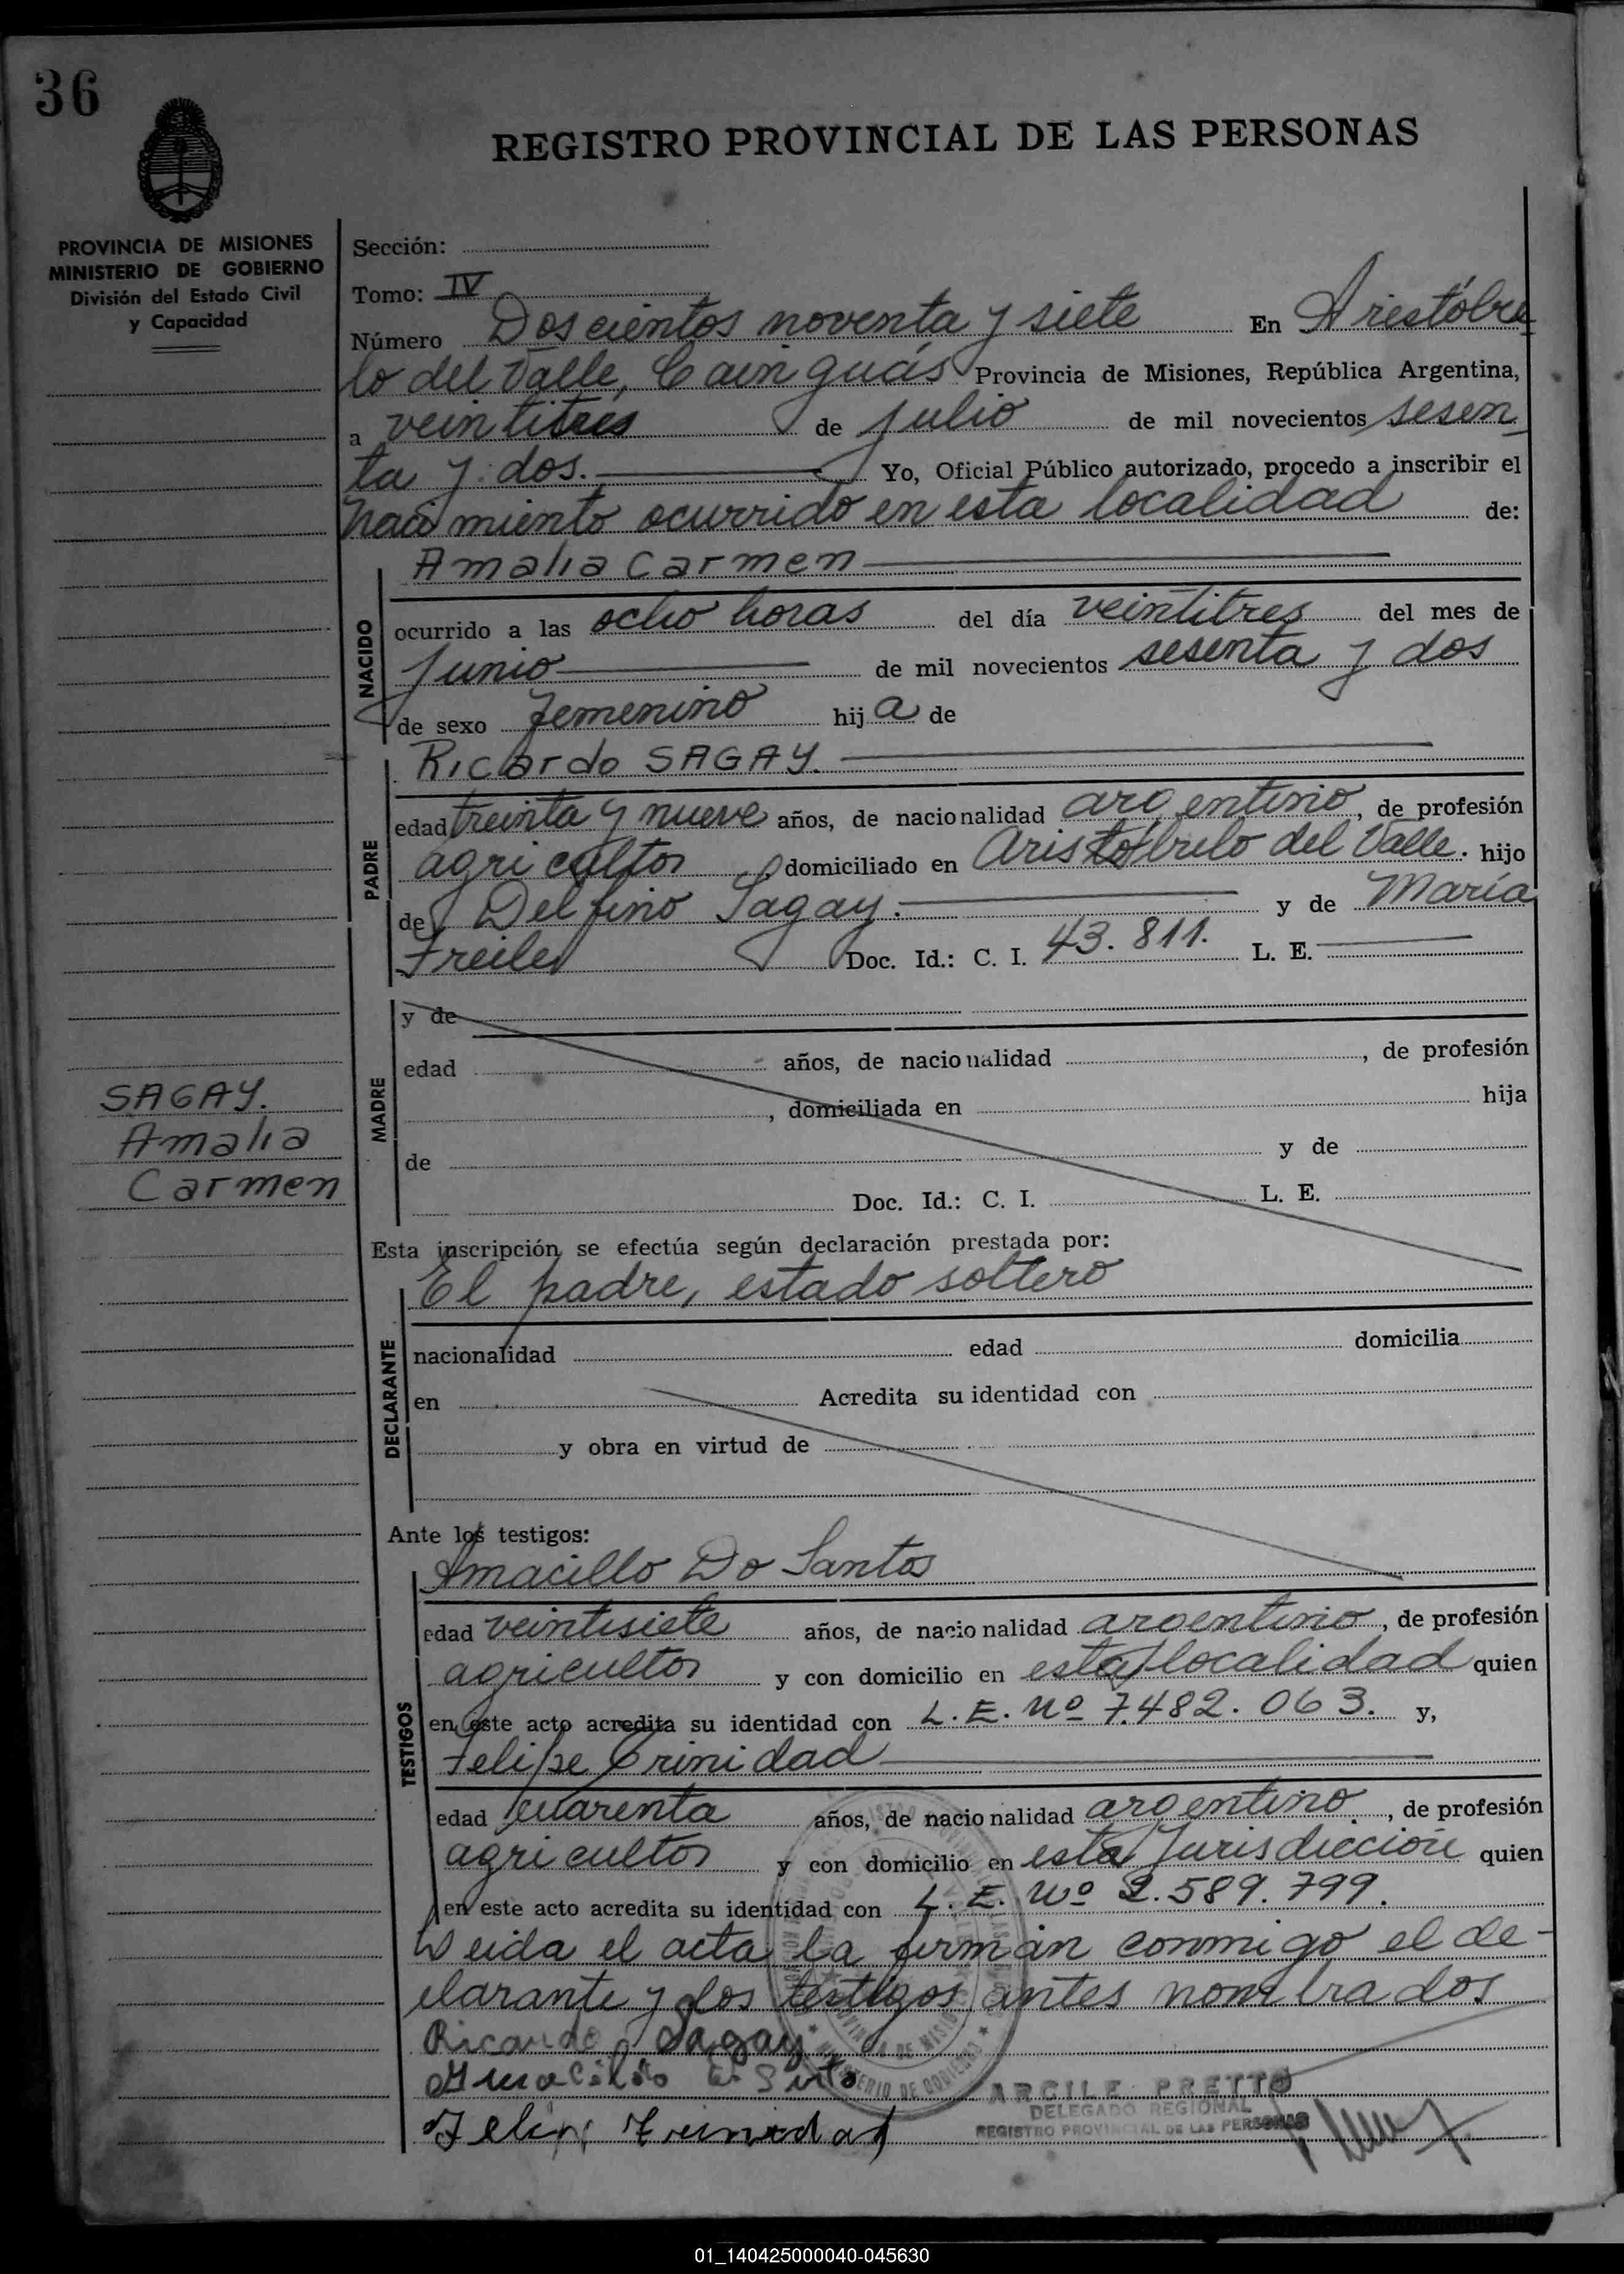 36
REGISTRO PROVINCIAL DE LAS PERSONAS
PROVINCIA DE MISIONES
MINISTERIO DE GOBIERNO
División del Estado Civil
y Capacidad
Sección:
Tomo: IV
Número Doscientos noventa y siete En Aristóbu
lo del Valle, Cainguás Provincia de Misiones, República Argentina,
a veintitres de julio de mil novecientos sesen
ta y dos. Yo, Oficial Público autorizado, procedo a inscribir el
Nacimiento ocurrido en esta localidad de:
Amalia Carmen
NACIDO
ocurrido a las ocho horas del día veintitres del mes de
Junio de mil novecientos sesenta y dos
de sexo femenino hija de
Ricardo SAGAY.
PADRE
edad treinta y nueve años, de nacionalidad argentino, de profesión
agricultor domiciliado en Aristóbulo del Valle. hijo
de Delfino Sagay. y de María
Freile Doc. Id.: C. I. 43.811. L. E.
MADRE
y de
edad años, de nacionalidad , de profesión
, domiciliada en hija
de y de
Doc. Id.: C. I. L. E.
SAGAY.
Amalia
Carmen
Esta inscripción se efectúa según declaración prestada por:
El padre, estado soltero
DECLARANTE
nacionalidad edad domicilia
en Acredita su identidad con
y obra en virtud de
Ante los testigos:
Amacillo Do Santos
TESTIGOS
edad veintisiete años, de nacionalidad argentino, de profesión
agricultor y con domicilio en esta localidad quien
en este acto acredita su identidad con L. E. Nº 7.482.063. y,
Felipe Trinidad
edad cuarenta años, de nacionalidad argentino, de profesión
agricultor y con domicilio en esta Jurisdicción quien
en este acto acredita su identidad con L. E. Nº 2.589.799.
Leida el acta la firman conmigo el de-
clarante y los testigos antes nombrados
Ricardo Sagay
ARGILE PRETTO
DELEGADO REGIONAL
REGISTRO PROVINCIAL DE LAS PERSONAS
Felipe Trinidad
PROVINCIA DE MISIONES
MINISTERIO DE GOBIERNO
01_140425000040-045630